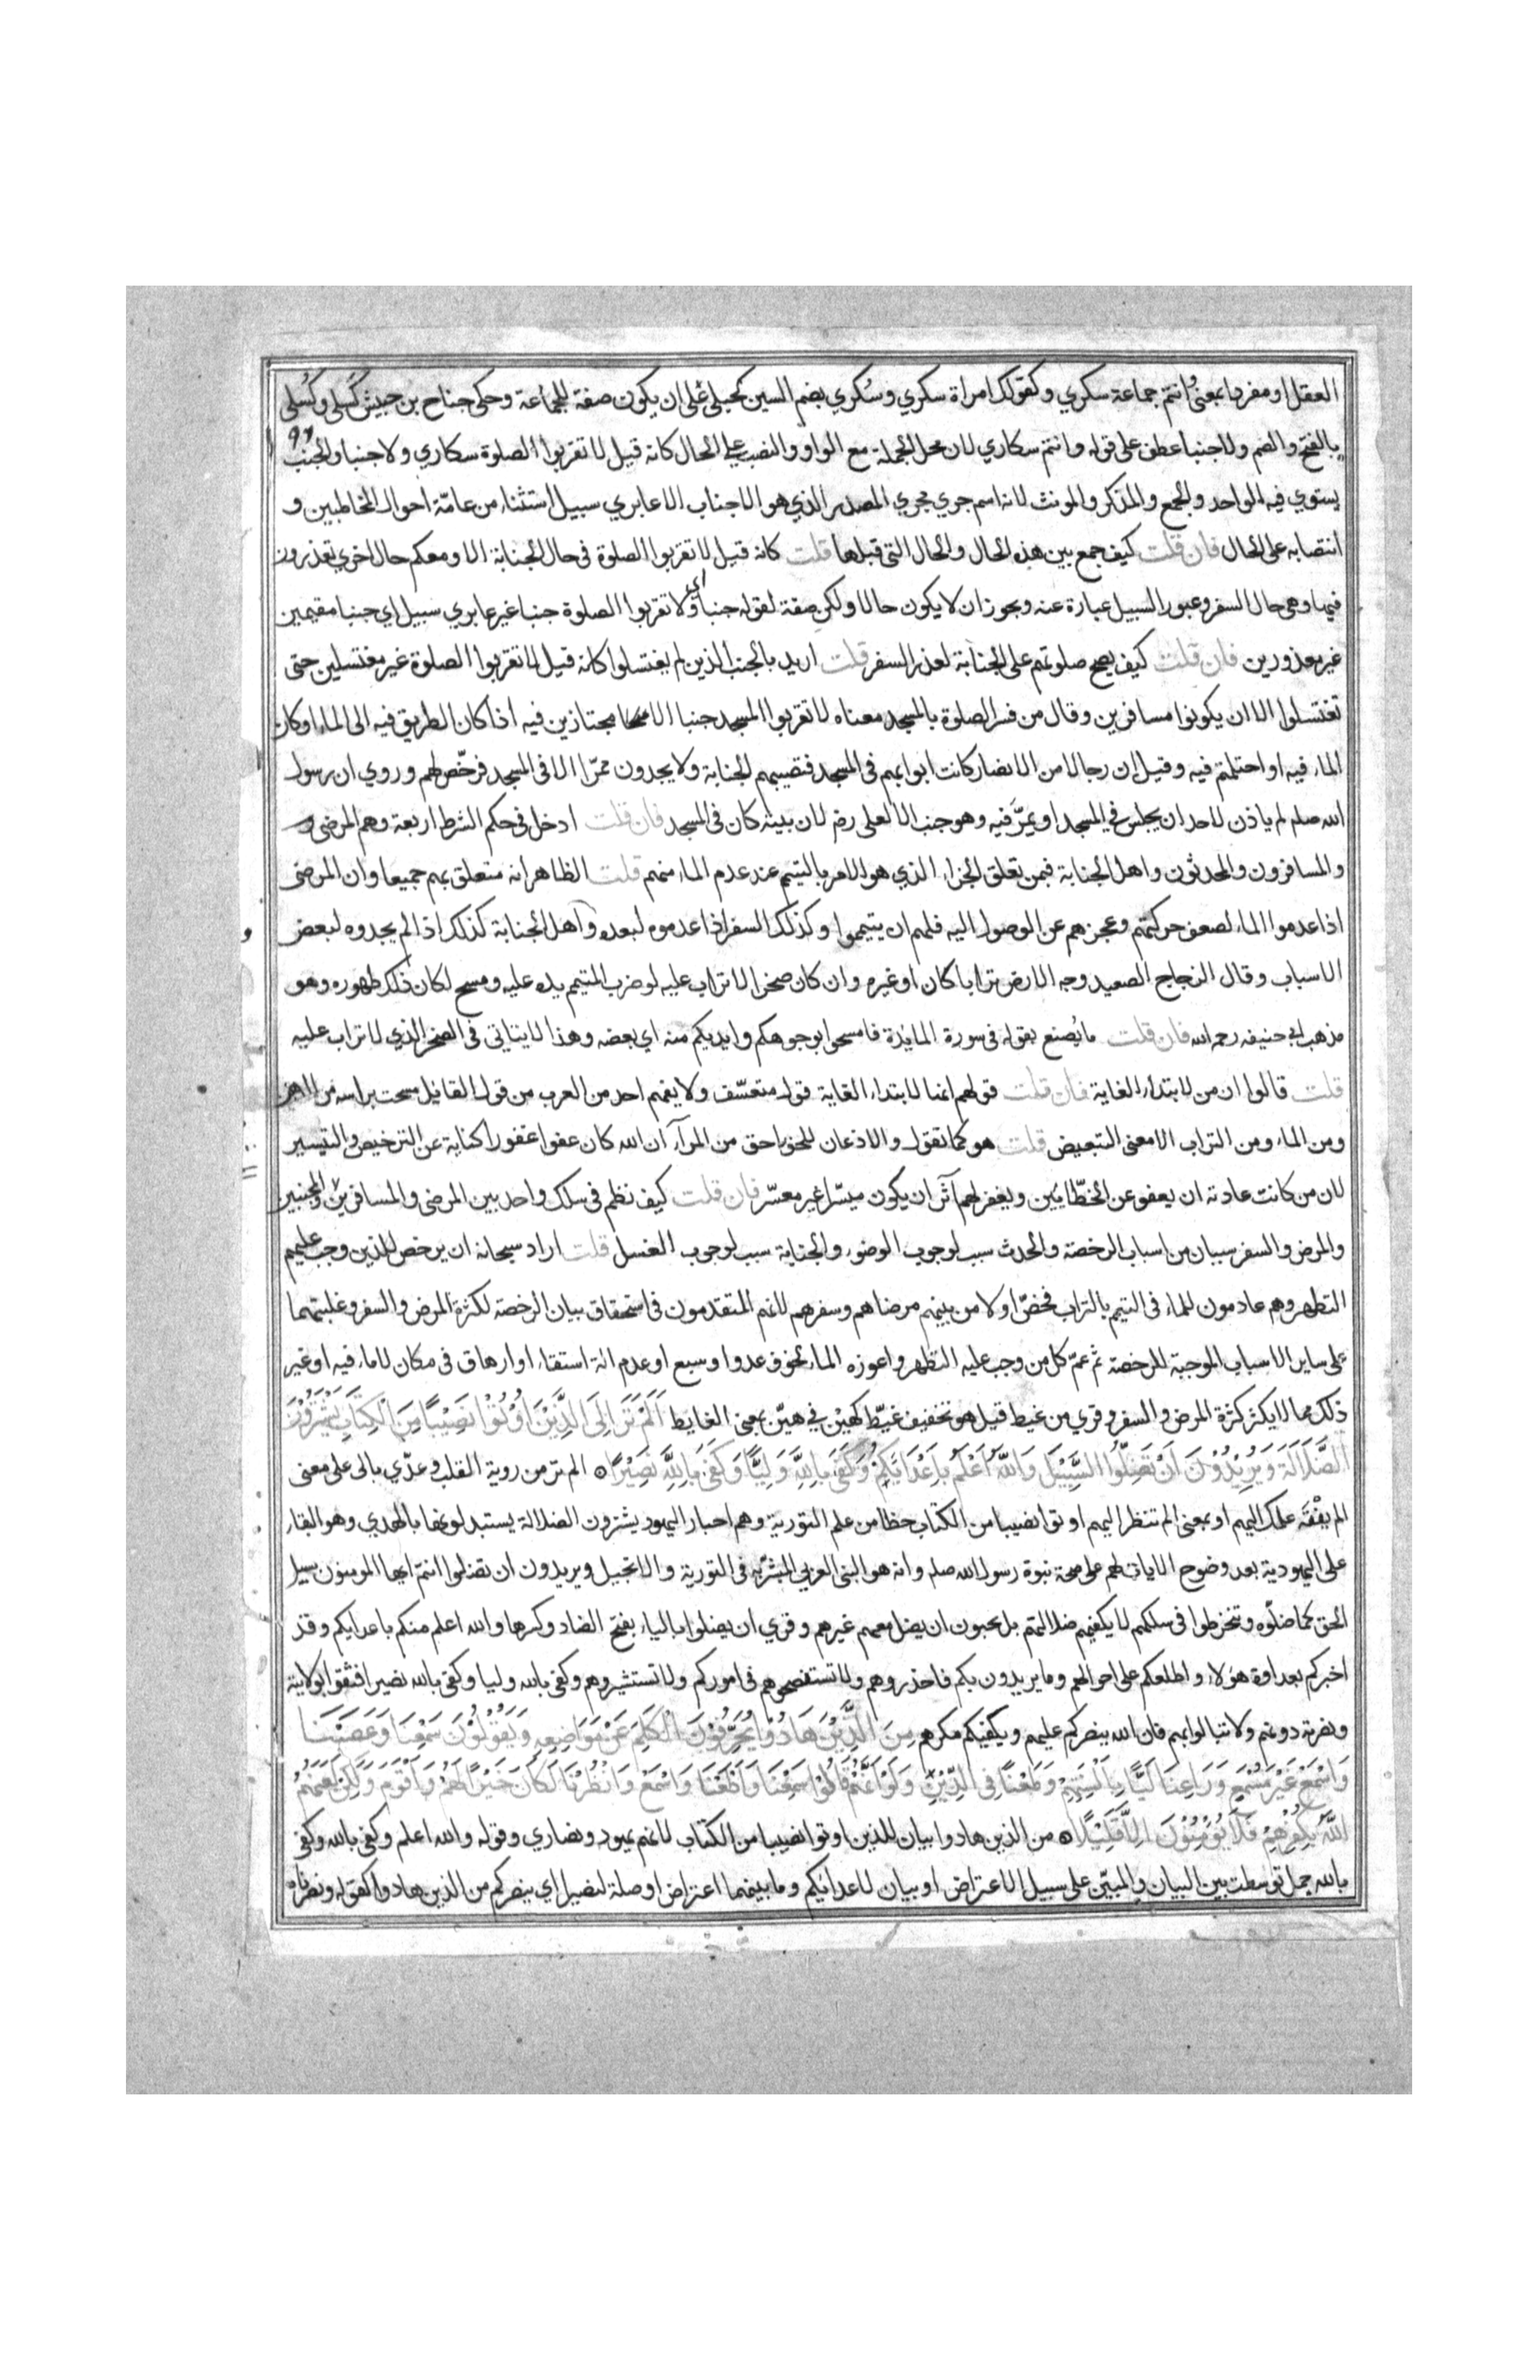 العقل او مفردا بمعنى وانتم جماعة سكري وكقولك امراة سكري وسُكري بضم السين كحبلى على ان يكون صفة للجماعة وحكى جناح بن حبيش كَسلى وكُسلى
بالفتح والضم ولا جنبا عطف على قوله وانتم سكاري لان محل الجملة مع الواو والنصب على الحال كانه قيل لا تقربوا الصلوة سكاري ولا جنبا والجنب
يستوي فيه الواحد والجمع والمذكر والمونث لانه اسم جري مجري المصدر الذي هو الاجناب الا عابري سبيل استثناء من عامّة احوال المخاطبين و
انتصابه على الحال فان قلت كيف جمع بين هذه الحال والحال التى قبلها قلت كانه قيل لا تقربوا الصلوة فى حال الجنابة الا ومعكم حال اخري تعذرون
فيها وهى حال السفر وعبور السبيل عبارة عنه ويجوز ان لا يكون حالا ولكن صفة لقوله جنبا اى ولا تقربوا الصلوة جنبا غير عابري سبيل اي جنبا مقيمين
غير معذورين فان قلت كيف يصح صلوتهم على الجنابة لعذر السفر قلت اريد بالجنب الذين لم يغتسلوا كانه قيل لا تقربوا الصلوة غير مغتسلين حتى
تغتسلوا الا ان يكونوا مسافرين وقال من فسر الصلوة بالمسجد معناه لا تقربوا المسجد جنبا الا مجتازين فيه اذا كان الطريق فيه الى الماء او كان
الماء فيه او احتلمتم فيه وقيل ان رجالا من الانصار كانت ابوابهم فى المسجد فتصيبهم الجنابة ولا يجدون ممرّا الا فى المسجد فرخّص لهم وروي ان رسول
الله صلم لم ياذن لاحد ان يجلس في المسجد او يمرّ فيه وهو جنب الا لعلى رضه لان بيته كان فى المسجد فان قلت ادخل فى حكم الشرط اربعة وهم المرضى و
والمسافرون والمحدثون واهل الجنابة فبمن تعلق الجزاء الذي هو الامر بالتيمم عند عدم الماء منهم قلت الظاهر انه متعلق بهم جميعا وان المرضى
اذا عدموا الماء لضعف حركتهم وعجزهم عن الوصول اليه فلهم ان يتيمموا وكذلك السفر اذا عدموه لبعده واهل الجنابة كذلك اذا لم يجدوه لبعض
الاسباب وقال الزجاج الصعيد وجه الارض ترابا كان او غيره وان كان صخرا لا تراب عليه لو ضرب المتيمم يده عليه ومسح لكان ذلك طهوره وهو
مذهب ابى حنيفه رحمه الله فان قلت ما يُصنع بقوله فى سورة المائدة فامسحوا بوجوهكم وايديكم منه اي بعضه وهذا لا يتاتى فى الصخر الذي لا تراب عليه
قلت قالوا ان من لابتداء الغاية فان قلت قولهم انها لابتداء الغاية قول متعسّف ولا يفهم احد من العرب من قول القايل مسحت براسه من الدهن
ومن الماء ومن التراب الا معنى التبعيض قلت هو كما تقول والاذعان للحق احق من المرآء ان الله كان عفوا غفورا كناية عن الترخيص والتيسير
لان من كانت عادته ان يعفو عن الخطّائين ويغفر لهم آثر ان يكون ميسّرا غير معسّر فان قلت كيف نظم فى سلك واحد بين المرضى والمسافرين والمجنبين
والمرض والسفر سببان من اسباب الرخصة والحدث سبب لوجوب الوضوء والجنابة سبب لوجوب الغسل قلت اراد سبحانه ان يرخص للذين وجب عليهم
التطهر وهم عادمون للماء فى التيمم بالتراب فخصّ اولا من بينهم مرضاهم وسفرهم لانهم المتقدمون فى استحقاق بيان الرخصة لكثرة المرض والسفر وغلبتهما
على ساير الاسباب الموجبة للرخصة ثم عمّ كل من وجب عليه التطهر واعوزه الماء لخوف عدو او سبع او عدم الة استقاء او ارهاق فى مكان لا ماء فيه او غير
ذلك مما لا يكثر كثرة المرض والسفر وقري من غيط قيل هو تخفيف غيّط كهين في هيّن بمعنى الغايط اَلَمْ تَرَ اِلَى الَّذِيْنَ اُوْتُوْا نَصِيْبًا مِنَ الْكِتَابِ يَشْتَرُوْنَ
الضَّلَالَةَ وَيُرِيْدُوْنَ اَنْ تَضِلُّوا السَّبِيْلَ وَاللّٰهُ اَعْلَمُ بِاَعْدَائِكُمْ وَكَفَى بِاللّٰهِ وَلِيًّا وَكَفَى بِاللّٰهِ نَصِيْرًا ۝ الم تر من روية القلب وعدّي بالى على معنى
الم ينته علمك اليهم او بمعنى الم تنظر اليهم اوتوا نصيبا من الكتاب حظا من علم التورية وهم احبار اليهود يشترون الضلالة يستبدلونها بالهدي وهو البقاء
على اليهودية بعد وضوح الايات لهم على صحة نبوة رسول الله صلم وانه هو النبى العربي المبشّر به فى التورية والانجيل ويريدون ان تضلوا انتم ايها المومنون سبيل
الحق كما ضلّوه وتنخرطوا فى سلكهم لا يكفيهم ضلالتهم بل يحبون ان يضل معهم غيرهم وقري ان يضلوا بالياء بفتح الضاد وكسرها والله اعلم منكم باعدايكم وقد
اخبركم بعداوة هولاء واطلعكم على احوالهم وما يريدون بكم فاحذروهم ولا تستنصحوهم فى اموركم ولا تستشيروهم وكفى بالله وليا وكفى بالله نصيرا فثقوا بولايته
ونصرته دونهم ولا تبالوا بهم فان الله ينصركم عليهم ويكفيكم مكرهم مِنَ الَّذِيْنَ هَادُوْا يُحَرِّفُوْنَ الْكَلِمَ عَنْ مَوَاضِعِهِ وَيَقُوْلُوْنَ سَمِعْنَا وَعَصَيْنَا
وَاسْمَعْ غَيْرَ مُسْمَعٍ وَرَاعِنَا لَيًّا بِاَلْسِنَتِهِمْ وَطَعْنًا فِى الدِّيْنِ وَلَوْ اَنَّهُمْ قَالُوْا سَمِعْنَا وَاَطَعْنَا وَاسْمَعْ وَانْظُرْنَا لَكَانَ خَيْرًا لَهُمْ وَاَقْوَمَ وَلٰكِنْ لَعَنَهُمُ
اللّٰهُ بِكُفْرِهِمْ فَلَا يُؤْمِنُوْنَ اِلَّا قَلِيْلًا ۝ من الذين هادوا بيان للذين اوتوا نصيبا من الكتاب لانهم يهود ونصاري وقوله والله اعلم وكفى بالله وكفى
بالله جمل توسطت بين البيان والمبيّن على سبيل الاعتراض او بيان لاعدائكم وما بينهما اعتراض او صلة لنصيرا اي ينصركم من الذين هادوا كقوله ونصرناه